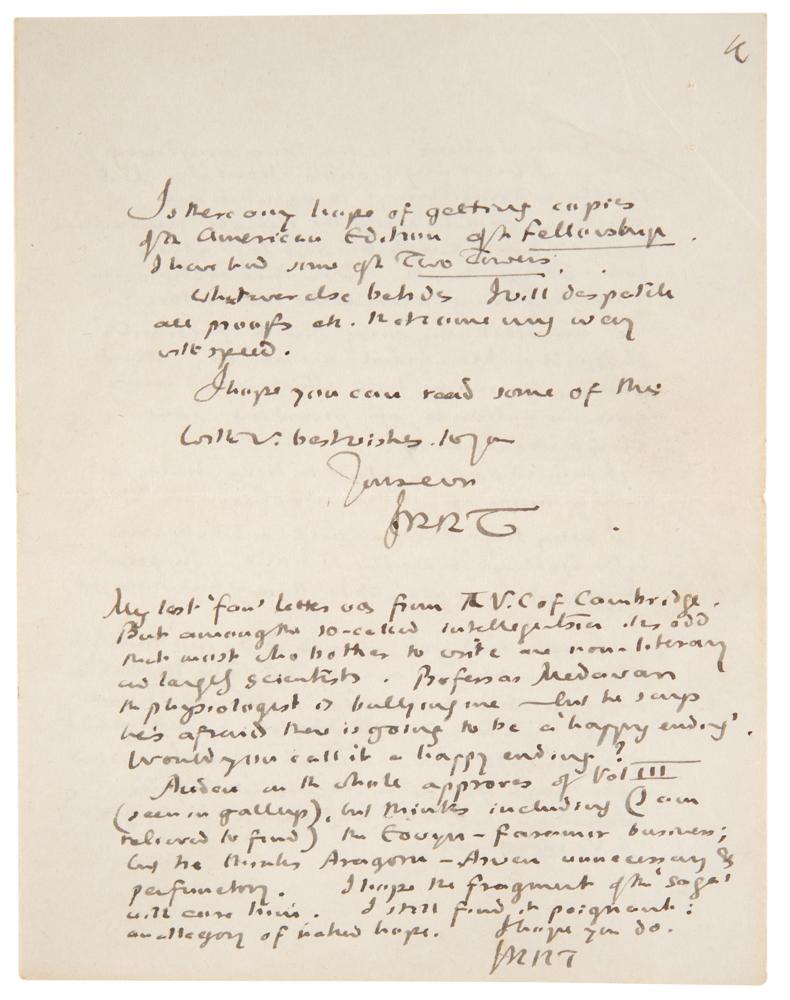 4
Is there any hope of getting copies
of the American Edition of the Fellowship.
I have had some of the Two Towers.
Whatever else betides I will despatch
all proofs etc. that come my way
with speed.
I hope you can read some of this
With v. best wishes to you
Yours ever
JRRT
My last 'fan' letter was from the V.C of Cambridge.
But among the so-called intelligentsia it is odd
that most who bother to write are non-literary
and largely scientists. Professor Medawar
the physiologist is bullying me — but he says
he's afraid there is going to be a 'happy ending'.
Would you call it a happy ending?
Auden on the whole approves of Vol III
(seen in gallies), but thinks including (I am
relieved to find) the Eowyn – Faramir business;
but he thinks Aragorn – Arwen unnecessary &
perfunctory. I hope the fragment of the 'saga'
will cure him. I still find it poignant:
an allegory of naked hope. I hope you do.
JRRT